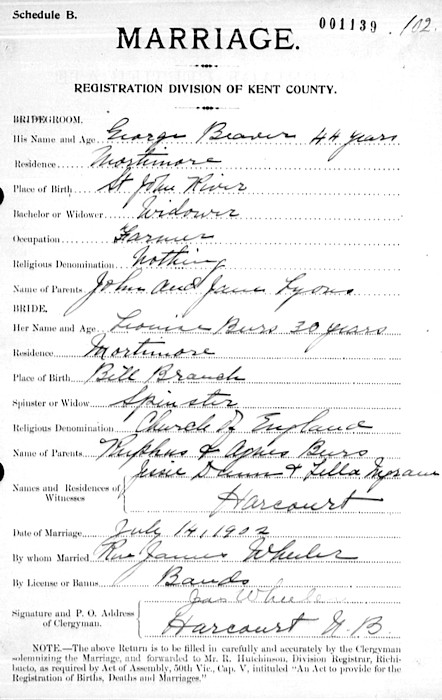 Schedule B.
001139 102.
MARRIAGE.
REGISTRATION DIVISION OF KENT COUNTY.
BRIDEGROOM.
His Name and Age George Beaver 44 years
Residence Mortimore
Place of Birth St John River
Bachelor or Widower Widower
Occupation Farmer
Religious Denomination Nothing
Name of Parents John and Jane Lyons
BRIDE.
Her Name and Age Louise Burs 30 years
Residence Mortimore
Place of Birth Bill Branch
Spinster or Widow Spinster
Religious Denomination Church of England
Name of Parents Ruphus & Agnes Burs
Jessie Dunn & Lella
Names and Residences of Witnesses
Harcourt
Date of Marriage July 14, 1902
By whom Married Rev James Wheeler
By License or Banns Bands
Jas Wheeler
Signature and P. O. Address of Clergyman.
Harcourt N B
NOTE.—The above Return is to be filled in carefully and accurately by the Clergyman
solemnizing the Marriage, and forwarded to Mr. R. Hutchinson, Division Registrar, Richi-
bucto, as required by Act of Assembly, 50th Vic., Cap. V, intituled "An Act to provide for the
Registration of Births, Deaths and Marriages."